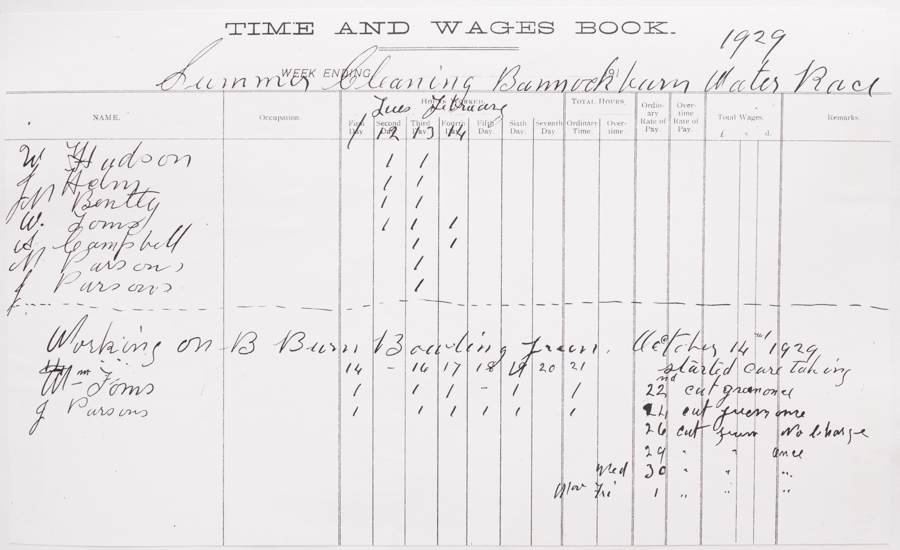 TIME AND WAGES BOOK.
1929
WEEK ENDING 191
Summer Cleaning Bannockburn Water Race
NAME. Occupation. HOURS WORKED. TOTAL HOURS. Ordinary Rate of Pay. Overtime Rate of Pay. Total Wages. Remarks.
Tues February
First Day. Second Day. Third Day. Fourth Day. Fifth Day. Sixth Day. Seventh Day. Ordinary Time. Overtime. £ s. d.
12 13 14
W Hudson 1 1
1 1
Bentty 1 1
W. Toms 1 1 1
A Campbell 1 1
N Parsons 1
J Parsons 1
Working on B Burn Bowling green. October 14 1929
14 - 16 17 18 19 20 21 started care taking
Wm Toms 1 1 1 - 1 1 22nd cut green once
J Parsons 1 1 1 1 1 1 24 cut green once
26 cut green No charge
29 " " once
Wed 30 " " "
Nov Fri 1 " " "